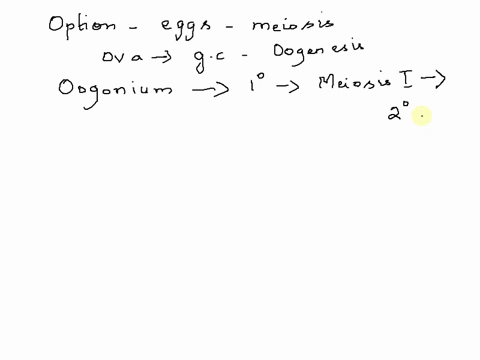 Option - eggs - meiosis
Ova → g.c - Oogenesis
Oogonium → 1° → Meiosis I →
2°